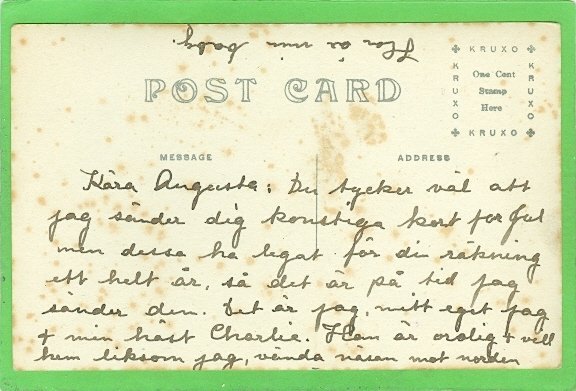 Han är min baby.
POST CARD
KRUXO
KRUXO
KRUXO
KRUXO
One Cent
Stamp
Here
MESSAGE
ADDRESS
Kära Augusta: Du tycker väl att
jag sänder dig konstiga kort for Jul
men dessa ha legat för din räkning
ett helt år, så det är på tid jag
sänder dem. Det är jag, mitt eget jag
+ min häst Charlie. Han är orolig + vill
hem liksom jag, vända näsan mot norden